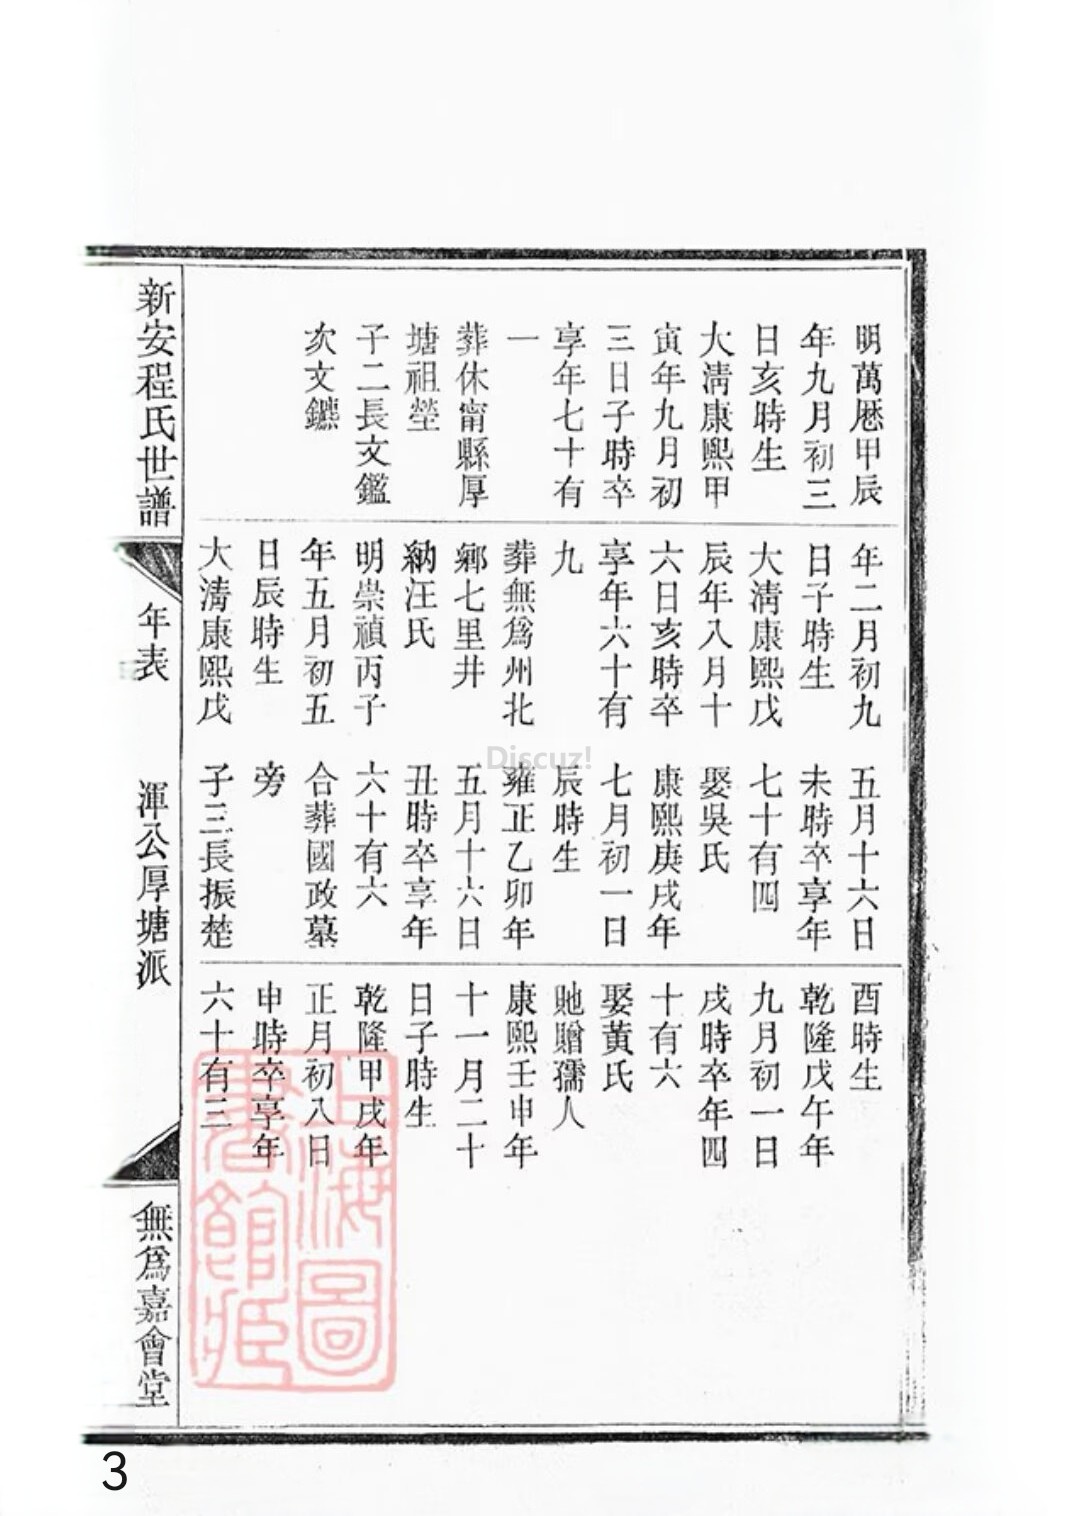 明萬厯甲辰
年九月初三
日亥時生
大淸康熙甲
寅年九月初
三日子時卒
享年七十有
一
葬休甯縣厚
塘祖塋
子二長文鑑
次文鑣
年二月初九
日子時生
大淸康熙戊
辰年八月十
六日亥時卒
享年六十有
九
葬無爲州北
鄕七里井
納汪氏
明崇禎丙子
年五月初五
日辰時生
大淸康熙戊
五月十六日
未時卒享年
七十有四
娶吳氏
康熙庚戌年
七月初一日
辰時生
雍正乙卯年
五月十六日
丑時卒享年
六十有六
合葬國政墓
旁
子三長振楚
酉時生
乾隆戊午年
九月初一日
戌時卒年四
十有六
娶黃氏
貤贈孺人
康熙壬申年
十一月二十
日子時生
乾隆甲戌年
正月初八日
申時卒享年
六十有三
新安程氏世譜
年表
渾公厚塘派
無爲嘉會堂
上海圖
書館藏
Discuz!
3